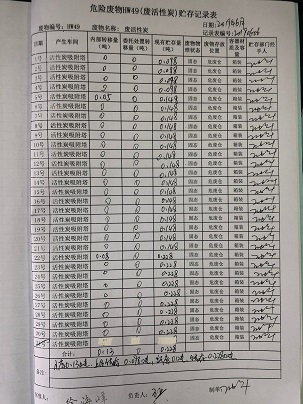 危险废物HW49(废活性炭)贮存记录表
废物编号: HW49 废物名称: 废活性炭 日期:
记录表编号:
日期 产生车间 内部转移量(吨) 委托处置转移量(吨) 现有贮存量(吨) 废物物理状态 废物存放位置 容器材质及容量 贮存部门经手人
1号 活性炭吸附塔 0 0 0.098 固态 危废仓 箱装
2号 活性炭吸附塔 0 0 0.098 固态 危废仓 箱装
3号 活性炭吸附塔 0 0 0.098 固态 危废仓 箱装
4号 活性炭吸附塔 0 0 0.098 固态 危废仓 箱装
5号 活性炭吸附塔 0 0 0.098 固态 危废仓 箱装
6号 活性炭吸附塔 0.05 0 0.148 固态 危废仓 箱装
7号 活性炭吸附塔 0 0 0.148 固态 危废仓 箱装
8号 活性炭吸附塔 0 0 0.148 固态 危废仓 箱装
9号 活性炭吸附塔 0 0 0.148 固态 危废仓 箱装
10号 活性炭吸附塔 0 0 0.148 固态 危废仓 箱装
11号 活性炭吸附塔 0 0 0.148 固态 危废仓 箱装
12号 活性炭吸附塔 0 0 0.148 固态 危废仓 箱装
13号 活性炭吸附塔 0 0 0.148 固态 危废仓 箱装
14号 活性炭吸附塔 0 0 0.148 固态 危废仓 箱装
15号 活性炭吸附塔 0 0 0.148 固态 危废仓 箱装
16号 活性炭吸附塔 0 0 0.148 固态 危废仓 箱装
17号 活性炭吸附塔 0 0 0.148 固态 危废仓 箱装
18号 活性炭吸附塔 0 0 0.148 固态 危废仓 箱装
19号 活性炭吸附塔 0 0 0.148 固态 危废仓 箱装
20号 活性炭吸附塔 0 0 0.148 固态 危废仓 箱装
21号 活性炭吸附塔 0 0 0.148 固态 危废仓 箱装
22号 活性炭吸附塔 0.08 0 0.228 固态 危废仓 箱装
23号 活性炭吸附塔 0 0 0.228 固态 危废仓 箱装
24号 活性炭吸附塔 0 0 0.228 固态 危废仓 箱装
25号 活性炭吸附塔 0 0 0.228 固态 危废仓 箱装
26号 活性炭吸附塔 0 0 0.228 固态 危废仓 箱装
27号 活性炭吸附塔 0 0 0.228 固态 危废仓 箱装
28号 活性炭吸附塔 0 0 0.228 固态 危废仓 箱装
29号 活性炭吸附塔 0 0 0.228 固态 危废仓 箱装
30号 活性炭吸附塔 0 0 0.228 固态 危废仓 箱装
31号 活性炭吸附塔 固态 危废仓 箱装
合计: 0.13 0 0.228
备注:
负责人: 制单: